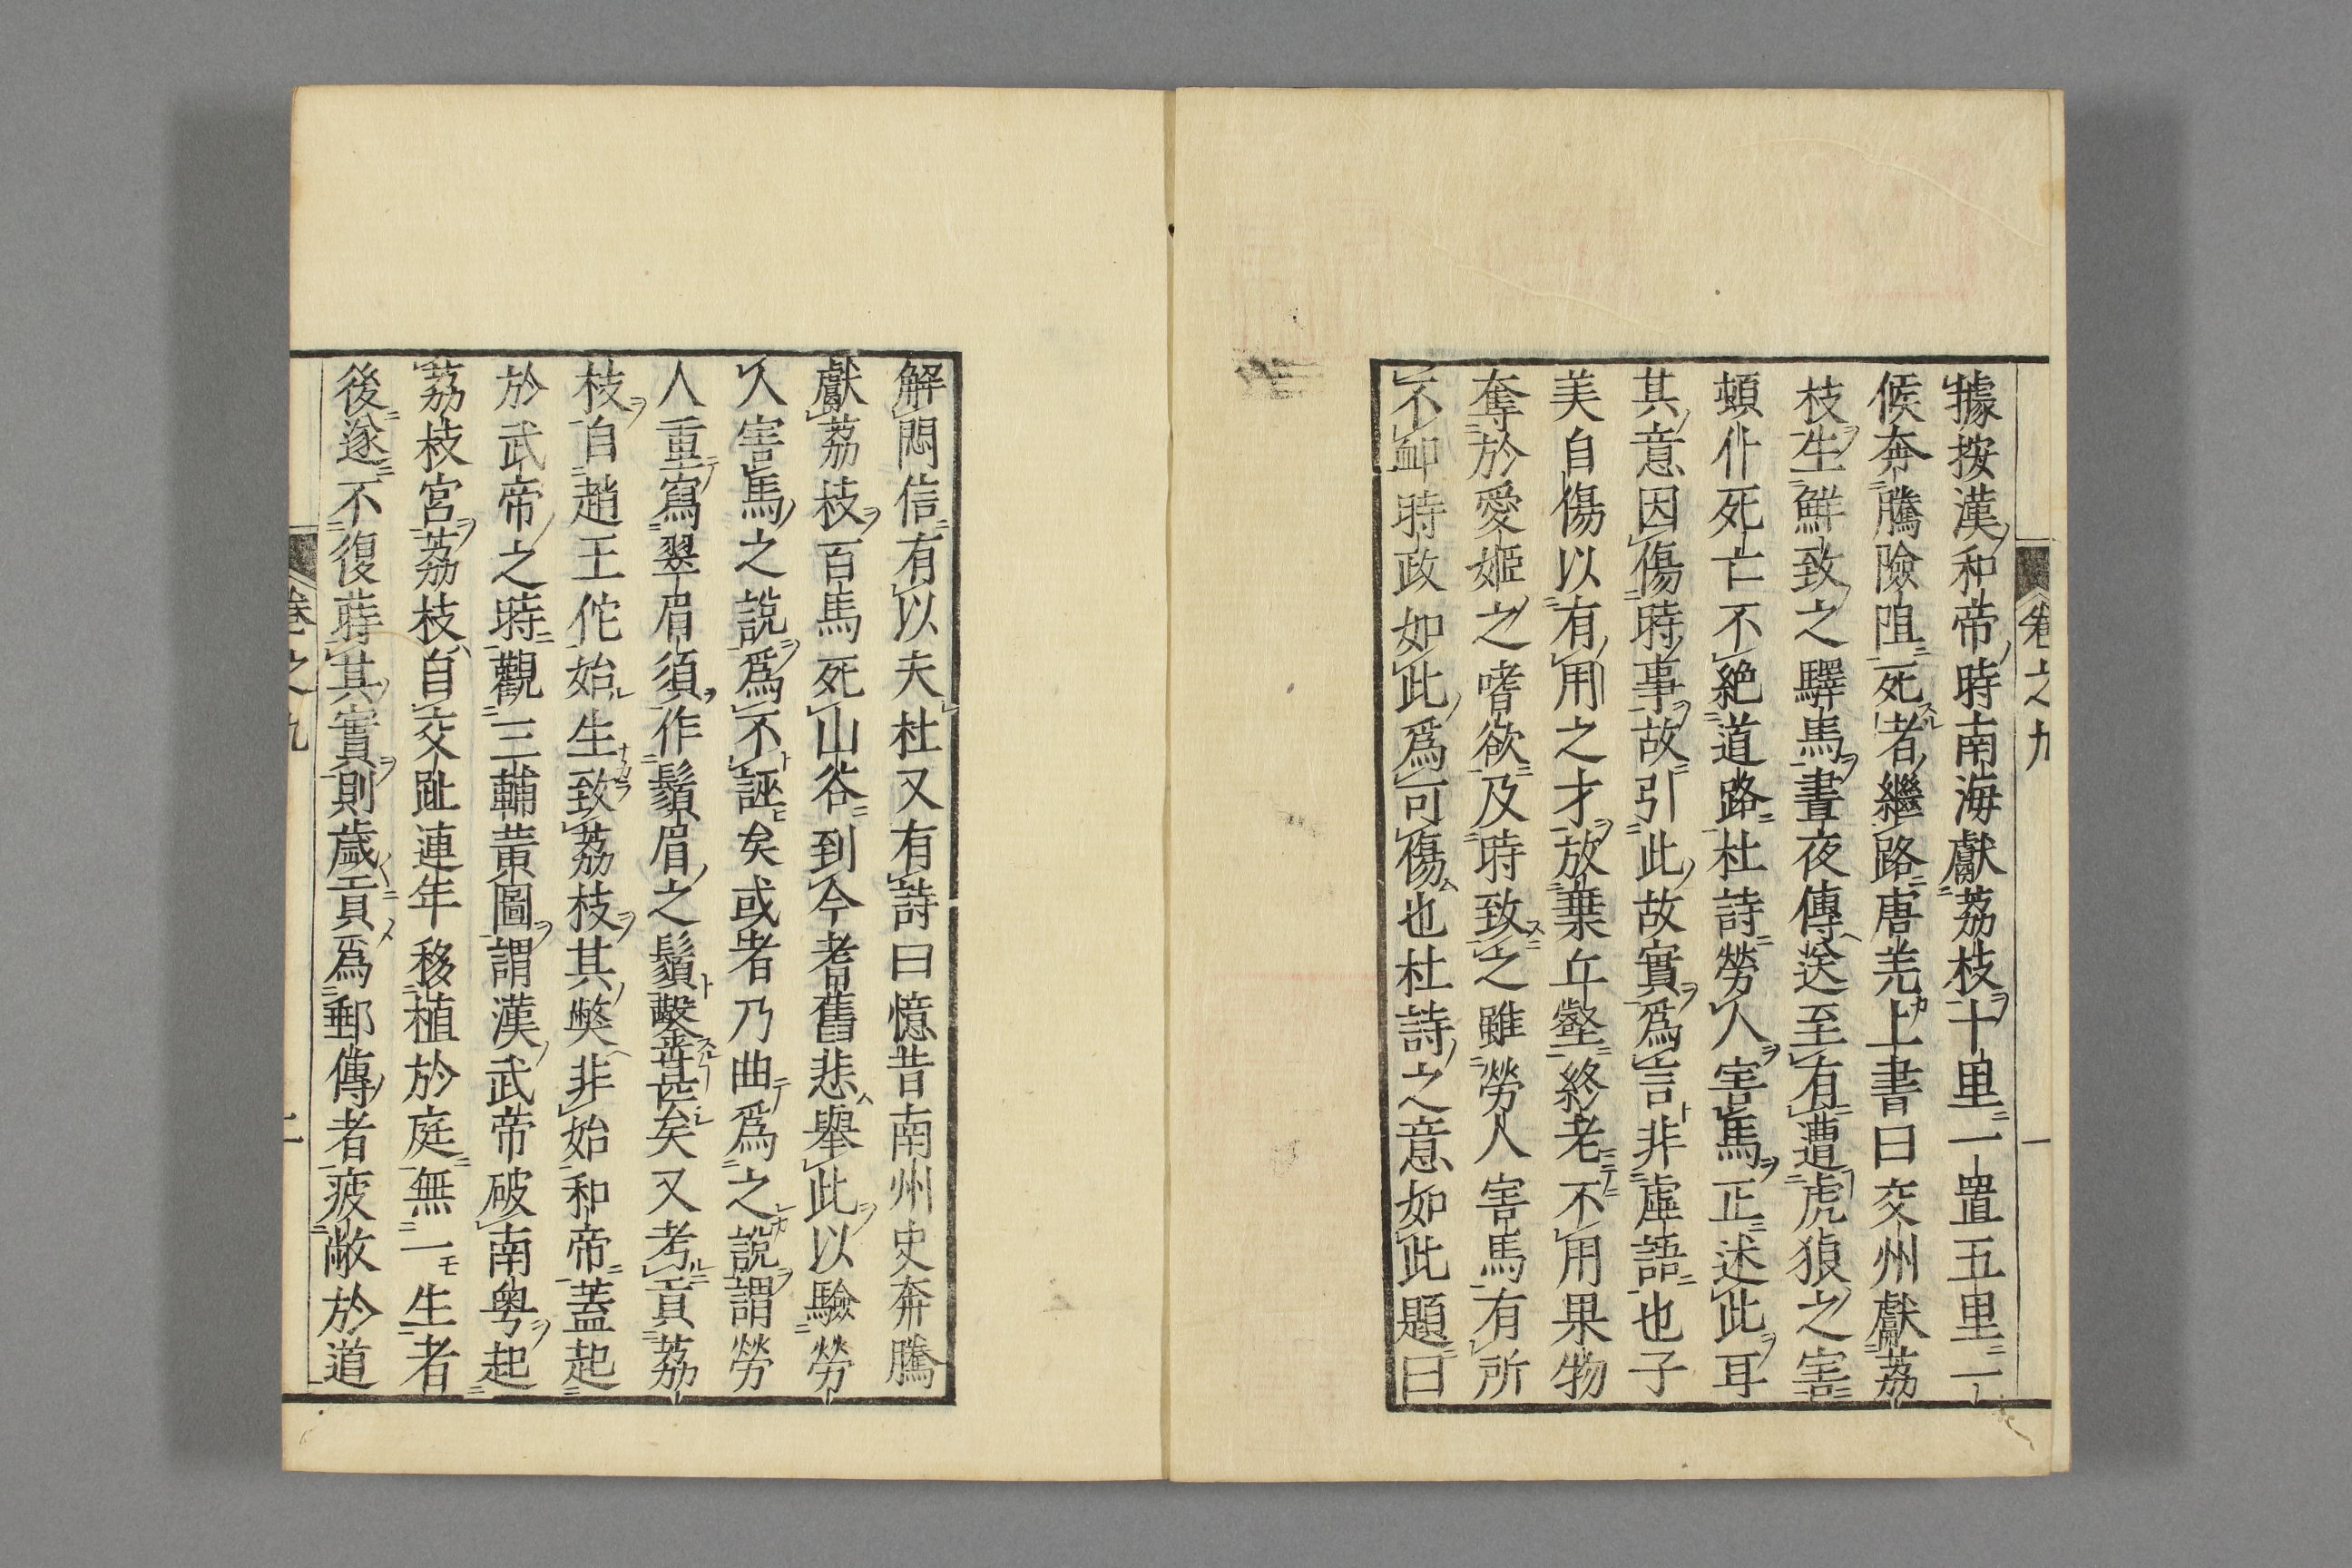 卷之九 一
據按漢和帝時南海獻荔枝十里一置五里一
候奔騰險阻死者繼路唐羌上書曰交州獻荔
枝生鮮致之驛馬晝夜傳送至有遭虎狼之害
頓仆死亡不絶道路杜詩勞人害馬正述此耳
其意因傷時事故引此故實爲言非虛語也子
美自傷以有用之才放棄丘壑終老不用果物
奪於愛姬之嗜欲及時致之雖勞人害馬有所
不卹時政如此爲可傷也杜詩之意如此題曰
解悶信有以夫杜又有詩曰憶昔南州史奔騰
獻荔枝百馬死山谷到今耆舊悲舉此以驗勞
人害馬之說爲不誣矣或者乃曲爲之說謂勞
人重寫翠眉須作鬚眉之鬚鑿甚矣又考貢荔
枝自趙王佗始生致荔枝其獘非始和帝蓋起
於武帝之時觀三輔黄圖謂漢武帝破南粤起
荔枝宮荔枝自交趾連年移植於庭無一生者
後遂不復蒔其實則歲貢爲郵傳者疲敝於道
卷之九